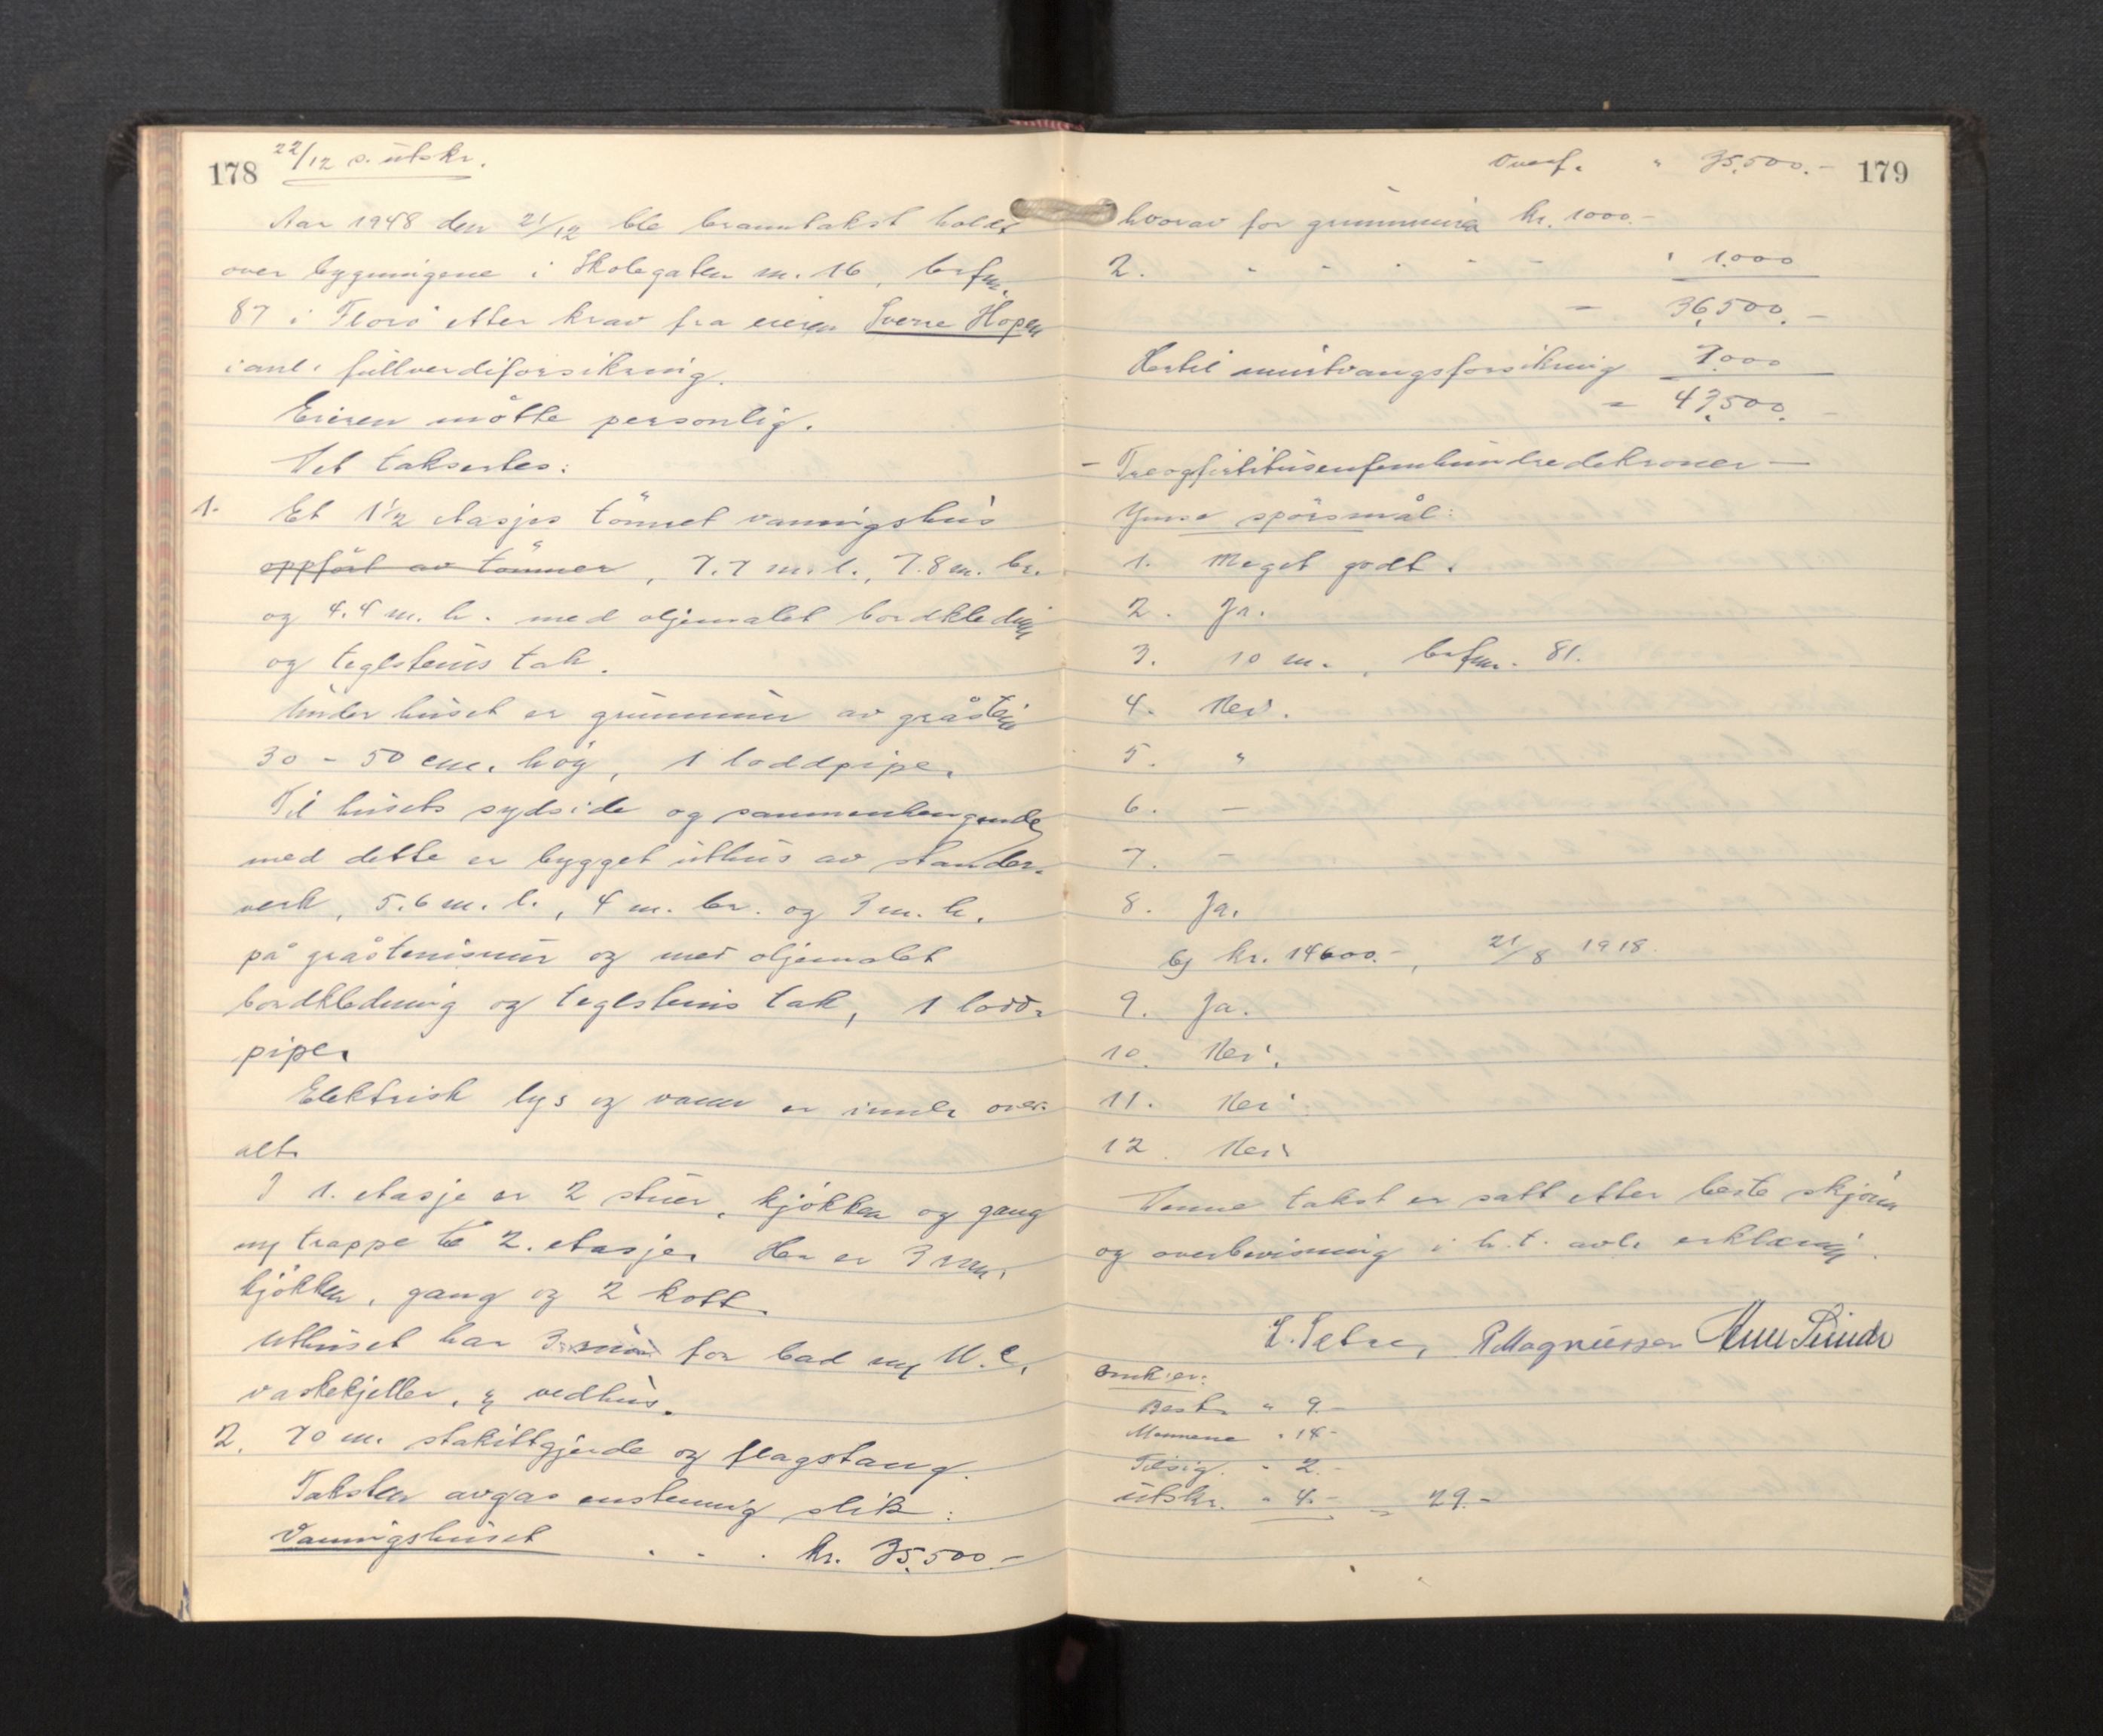 178
22/12 s. utskr.
Aar 1948 den 21/12 ble branntakst holdt
over bygningene i Skolegaten nr. 16, brfnr.
87 i Florø etter krav fra eieren Sverre Hopen
i anl. fullverdiforsikring.
Eieren møtte personlig.
Det taksertes:
1. Et 1½ etasjes tømret vaaningshus
oppført av tømmer, 7.7 m. l., 7.8 m. br.
og 4.4 m. h. med oljemalet bordkledning
og teglsteins tak.
Under huset er grunnmur av gråstein
30 - 50 cm. høy, 1 loddpipe.
Til husets sydside og sammenhengende
med dette er bygget uthus av stander-
verk, 5.6 m. l., 4 m. br. og 3 m. h.
på gråstensmur og med oljemalet
bordkledning og teglsteins tak, 1 lodd-
pipe.
Elektrisk lys og varme er innlr over-
alt.
I 1. etasje er 2 stuer, kjøkken og gang
m/ trappe til 2. etasje. Her er 3 rum,
kjøkken, gang og 2 kott.
Uthuset har 3 rum for bad m/ W.C,
vaskekjeller, og vedhus.
2. 70 m. stakittgjerde og flagstang.
Taksten avgas enstemmig slik:
Vaaningshuset . . . kr. 35.500 -
179
Overf. " 35.500. -
hvorav for grunnmura kr. 1000. -
2. " " " " " " 1.000
= 36.500. -
Hertil innistvangsforsikring 7.000
= 43.500. -
- Treogførtitusenfemhundredekroner -
Ymse spørsmål:
1. Meget godt.
2. Ja.
3. 10 m., brfnr. 81.
4. Nei.
5. "
6. -
7. -
8. Ja.
b) kr. 14600. -, 21/8 1918.
9. Ja.
10. Nei.
11. Nei.
12. Nei.
Denne takst er satt etter beste skjønn
og overbevisning i h.t. avlr erklæring.
E. Setre, R Magnussen
Omk:er:
Best. " 9. -
Mennene " 14 -
Tilsig. " 2. -
utskr. " 4. - = 29. -